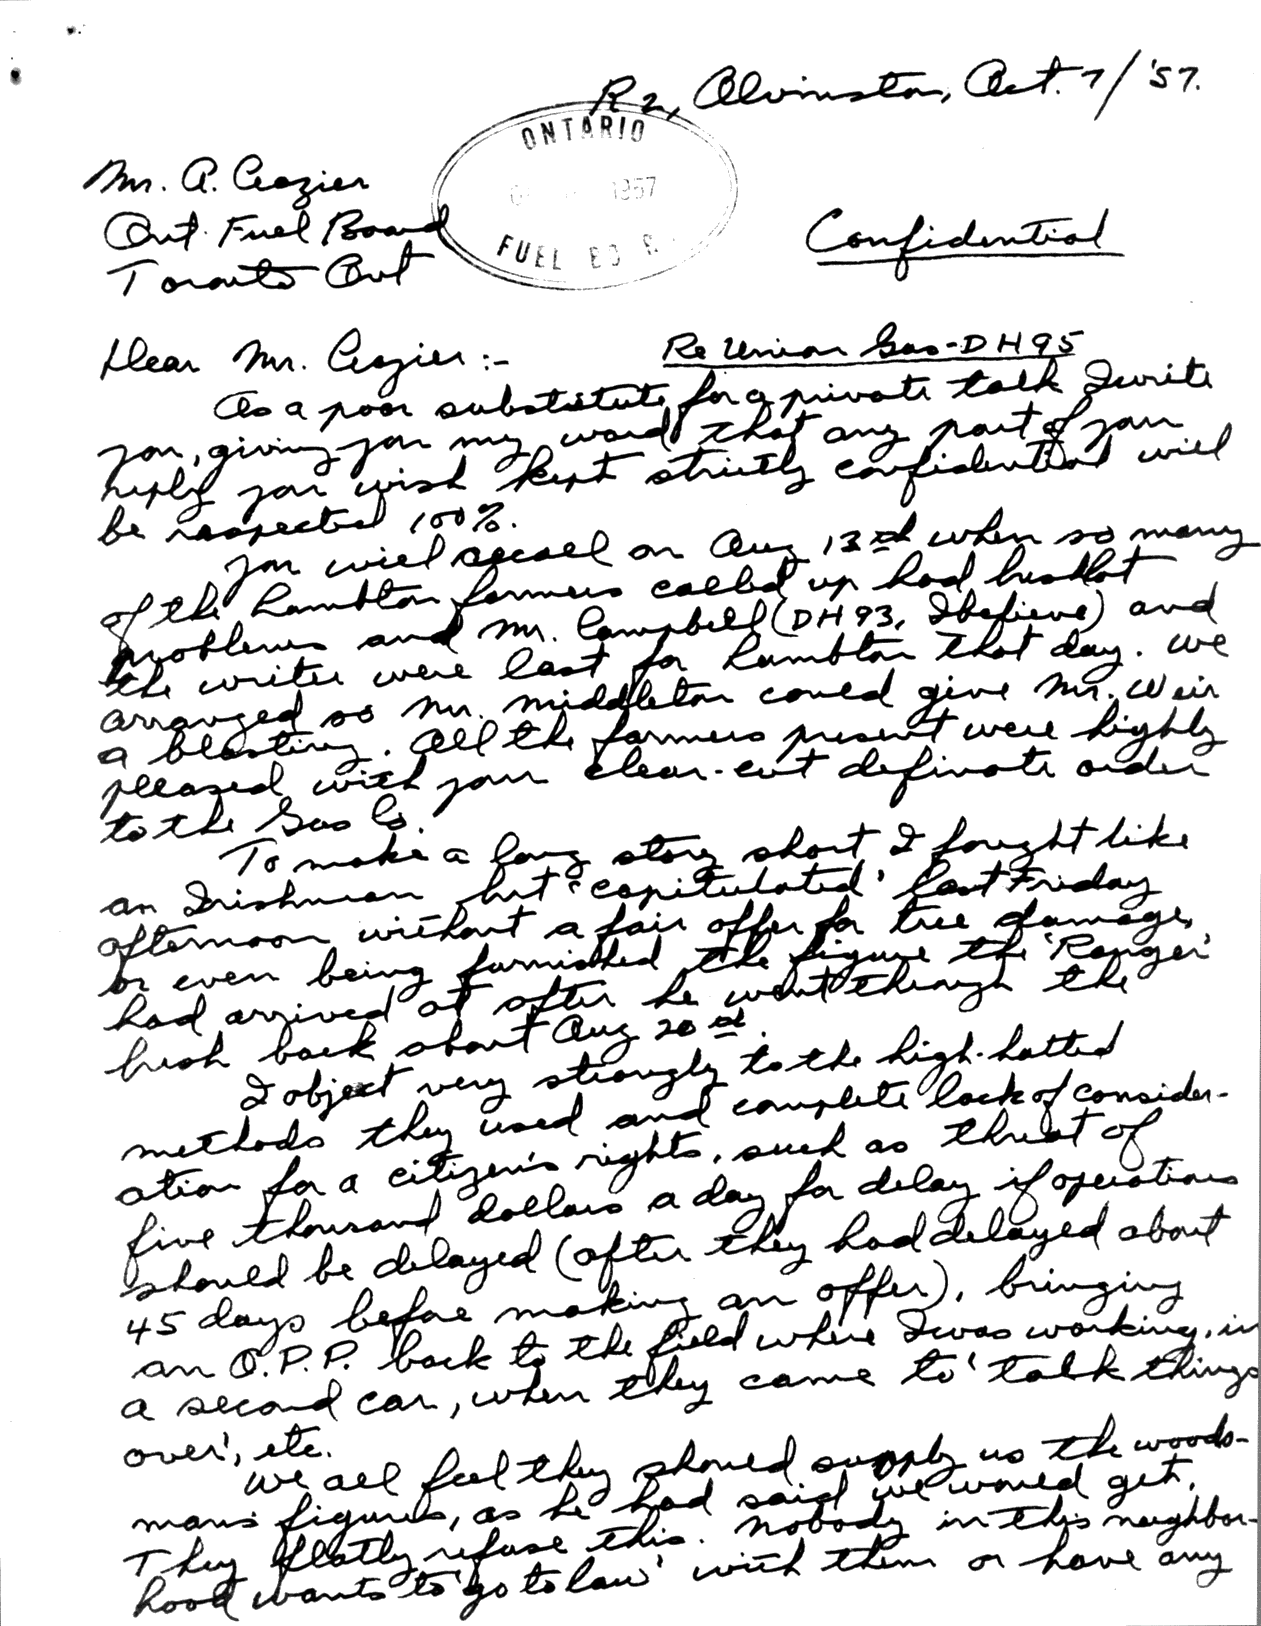 R 2, Alvinston, Oct. 7/'57.
ONTARIO
1957
FUEL
Mr. A. Crozier
Ont. Fuel Board
Toronto Ont
Confidential
Dear Mr. Crozier:-
Re Union Gas-DH95
As a poor substitute for a private talk I write
you, giving you my word that any part of your
reply you wish kept strictly confidential will
be respected 100%.
You will recall on Aug 13th when so many
of the Lambton farmers called up had bushlot
problems and Mr. Campbell (DH93, I believe) and
the writer were last for Lambton that day. We
arranged so Mr. Middleton could give Mr. Weir
a blasting. All the farmers present were highly
pleased with your clear-cut definate order
to the Gas Co.
To make a long story short I fought like
an Irishman but 'capitulated' last Friday
afternoon without a fair offer for tree damage,
or even being furnished the figure the 'Ranger'
had arrived at after he went through the
bush back about Aug 20th.
I object very strongly to the high-hatted
methods they used and complete lack of consider-
ation for a citizen's rights, such as threat of
five thousand dollars a day for delay if operations
should be delayed (after they had delayed about
45 days before making an offer), bringing
an O.P.P. back to the field where I was working, in
a second car, when they came to 'talk things
over', etc.
We all feel they should supply us the woods-
man's figures, as he had said we would get.
They flatly refuse this. Nobody in this neighbor-
hood wants to 'go to law' with them or have any